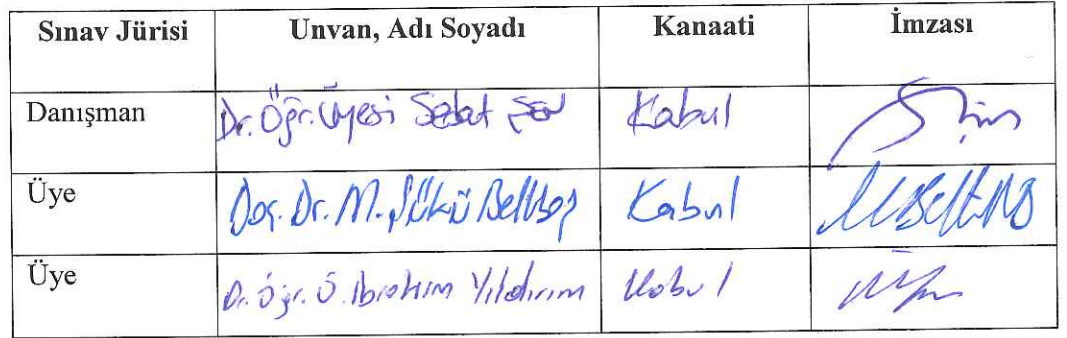 Sınav Jürisi Unvan, Adı Soyadı Kanaati İmzası
Danışman Dr. Öğr. Üyesi Sedat Şen Kabul
Üye Doç. Dr. M. Şükrü Bellibaş Kabul
Üye Dr. Öğr. Ü. İbrahim Yıldırım Kabul